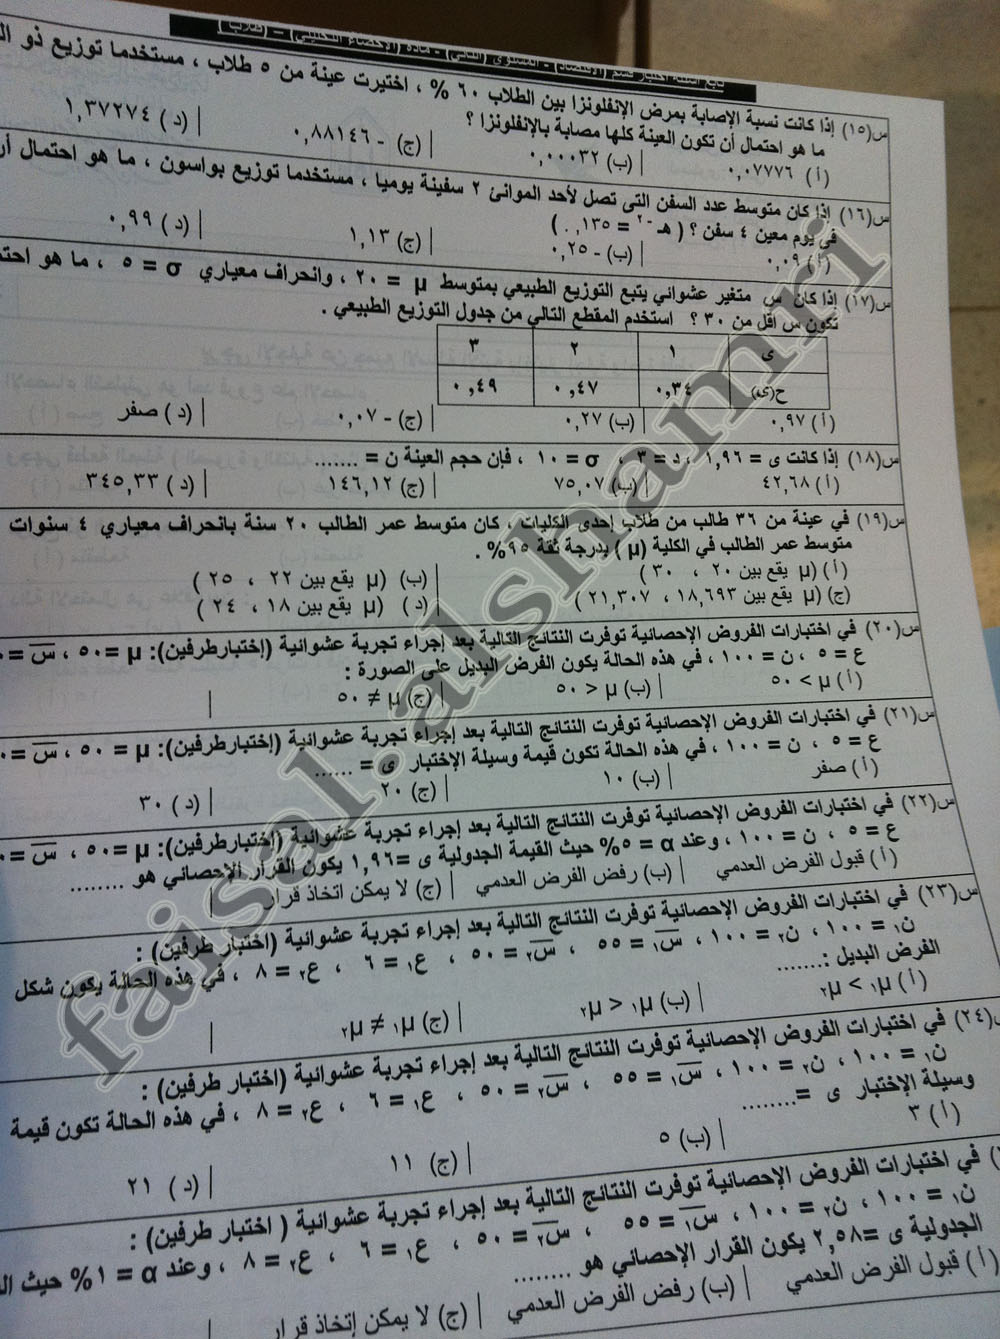 تابع أسئلة اختبار قسم (الاقتصاد) - المستوى (الثاني) - مادة (الإحصاء التحليلي) - (طلاب)
س(١٥) إذا كانت نسبة الإصابة بمرض الإنفلونزا بين الطلاب ٦٠ % ، اختيرت عينة من ٥ طلاب ، مستخدما توزيع ذو
ما هو احتمال أن تكون العينة كلها مصابة بالإنفلونزا ؟
(أ) ٠,٠٧٧٧٦ (ب) ٠,٠٠٠٣٢ | (ج) - ٠,٨٨١٤٦ | (د) ١,٣٧٢٧٤
س(١٦) إذا كان متوسط عدد السفن التى تصل لأحد الموانئ ٢ سفينة يوميا ، مستخدما توزيع بواسون ، ما هو احتمال أن
في يوم معين ٤ سفن ؟ ( هـ -٢ = ٠.١٣٥ )
(أ) ٠,٠٩ (ب) - ٠,٢٥ | (ج) ١,١٣ | (د) ٠,٩٩
س(١٧) إذا كان س متغير عشوائي يتبع التوزيع الطبيعي بمتوسط μ = ٢٠ ، وانحراف معياري σ = ٥ ، ما هو
تكون س أقل من ٣٠ ؟ استخدم المقطع التالي من جدول التوزيع الطبيعي .
ى ١ ٢ ٣
ح(ى) ٠,٣٤ ٠,٤٧ ٠,٤٩
(أ) ٠,٩٧ | (ب) ٠,٢٧ | (ج) - ٠,٠٧ | (د) صفر
س(١٨) إذا كانت ى = ١,٩٦ ، د = ٣ ، σ = ١٠ ، فإن حجم العينة ن = .......
(أ) ٤٢,٦٨ | (ب) ٧٥,٠٧ | (ج) ١٤٦,١٢ | (د) ٣٤٥,٣٣
س(١٩) في عينة من ٣٦ طالب من طلاب إحدى الكليات ، كان متوسط عمر الطالب ٢٠ سنة بانحراف معياري ٤ سنوات
متوسط عمر الطالب في الكلية (μ) بدرجة ثقة ٩٥% .
(أ) (μ يقع بين ٢٠ ، ٣٠ ) (ب) (μ يقع بين ٢٢ ، ٢٥ )
(ج) (μ يقع بين ١٨,٦٩٣ ، ٢١,٣٠٧ ) (د) (μ يقع بين ١٨ ، ٢٤ )
س(٢٠) في اختبارات الفروض الإحصائية توفرت النتائج التالية بعد إجراء تجربة عشوائية (إختبارطرفين): μ = ٥٠ ، س =
ع = ٥ ، ن = ١٠٠ ، في هذه الحالة يكون الفرض البديل على الصورة :
(أ) μ > ٥٠ | (ب) μ < ٥٠ | (ج) μ ≠ ٥٠ |
س(٢١) في اختبارات الفروض الإحصائية توفرت النتائج التالية بعد إجراء تجربة عشوائية (إختبارطرفين): μ = ٥٠ ، س =
ع = ٥ ، ن = ١٠٠ ، في هذه الحالة تكون قيمة وسيلة الإختبار ى = ......
(أ) صفر | (ب) ١٠ | (ج) ٢٠ | (د) ٣٠
س(٢٢) في اختبارات الفروض الإحصائية توفرت النتائج التالية بعد إجراء تجربة عشوائية (إختبارطرفين): μ = ٥٠ ، س =
ع = ٥ ، ن = ١٠٠ ، وعند α = ٥% حيث القيمة الجدولية ى = ١,٩٦ يكون القرار الإحصائي هو ........
(أ) قبول الفرض العدمي | (ب) رفض الفرض العدمي | (ج) لا يمكن اتخاذ قرار |
س(٢٣) في اختبارات الفروض الإحصائية توفرت النتائج التالية بعد إجراء تجربة عشوائية (اختبار طرفين) :
ن١ = ١٠٠ ، ن٢ = ١٠٠ ، س١ = ٥٥ ، س٢ = ٥٠ ، ع١ = ٦ ، ع٢ = ٨ ، في هذه الحالة يكون شكل
الفرض البديل :.......
(أ) μ١ > μ٢ | (ب) μ١ < μ٢ | (ج) μ١ ≠ μ٢ |
س(٢٤) في اختبارات الفروض الإحصائية توفرت النتائج التالية بعد إجراء تجربة عشوائية (اختبار طرفين) :
ن١ = ١٠٠ ، ن٢ = ١٠٠ ، س١ = ٥٥ ، س٢ = ٥٠ ، ع١ = ٦ ، ع٢ = ٨ ، في هذه الحالة تكون قيمة
وسيلة الإختبار ى =........
(أ) ٣ | (ب) ٥ | (ج) ١١ | (د) ٢١
في اختبارات الفروض الإحصائية توفرت النتائج التالية بعد إجراء تجربة عشوائية ( اختبار طرفين) :
ن١ = ١٠٠ ، ن٢ = ١٠٠ ، س١ = ٥٥ ، س٢ = ٥٠ ، ع١ = ٦ ، ع٢ = ٨ ، وعند α = ١% حيث
الجدولية ى = ٢,٥٨ يكون القرار الإحصائي هو ........
(أ) قبول الفرض العدمي | (ب) رفض الفرض العدمي | (ج) لا يمكن إتخاذ قرار |
faisal.alshamri